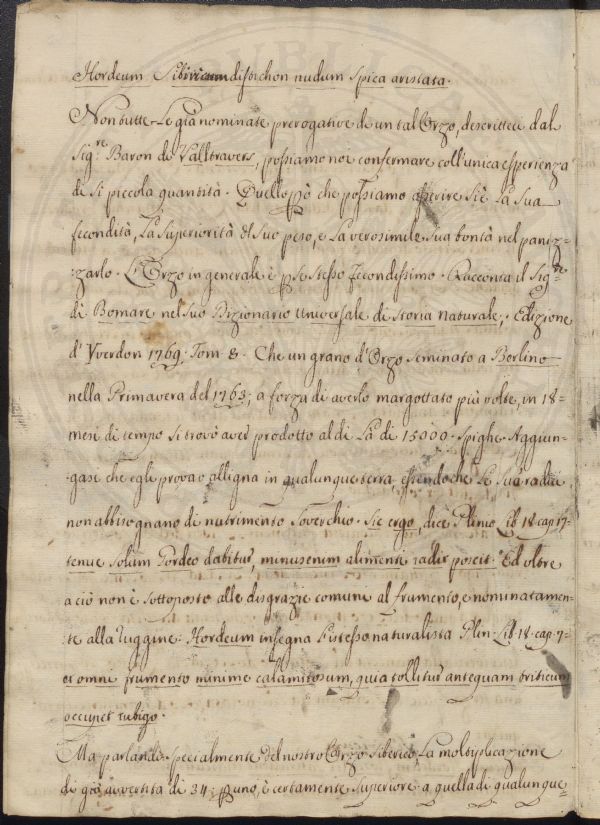 Hordeum Sibiricum distichon nudum spica aristata.
Non tutte le già nominate prerogative de un tal Orzo, descritteci dal
Sig.re Baron de Valltravers, possiamo noi confermare coll'unica esperienza
di sì piccola quantità. Quello però che possiamo asserire si è la sua
fecondità, la superiorità del suo peso, e la verosimile sua bontà nel paniz-
:zarlo. L'Orzo in generale è per se stesso fecondissimo. Racconta il Sig.re
di Bomare nel suo Dizionario Universale di Storia naturale; Edizione
d'Yverdon 1769: Tom 8. Che un grano d'Orzo seminato a Berlino
nella Primavera del 1763; a forza di averlo margottato più volte, in 18-
mesi di tempo si trovò aver prodotto al di là di 15000. Spighe. Aggiun-
-gasi che egli prova o alligna in qualunque terra, essendoche le sue radici
non abbisognano di nutrimento soverchio. Sic ergo, dice Plinio Lib 18. cap 17-
tenue solum hordeo dabitur, minus enim alimenti radix poscit. Ed oltre
a ciò non è sottoposto alle disgrazie comuni al frumento, e nominatamen-
:te alla ruggine. Hordeum insegna l'istesso naturalista Plin. Lib. 18. cap. 7-
ex omni frumento minime calamitosum, quia tollitur antequam triticum
occupet rubigo.
Ma parlando specialmente del nostro Orzo Siberico, la moltiplicazione
di già avvertita di 34. per uno, è certamente superiore a quella di qualunque